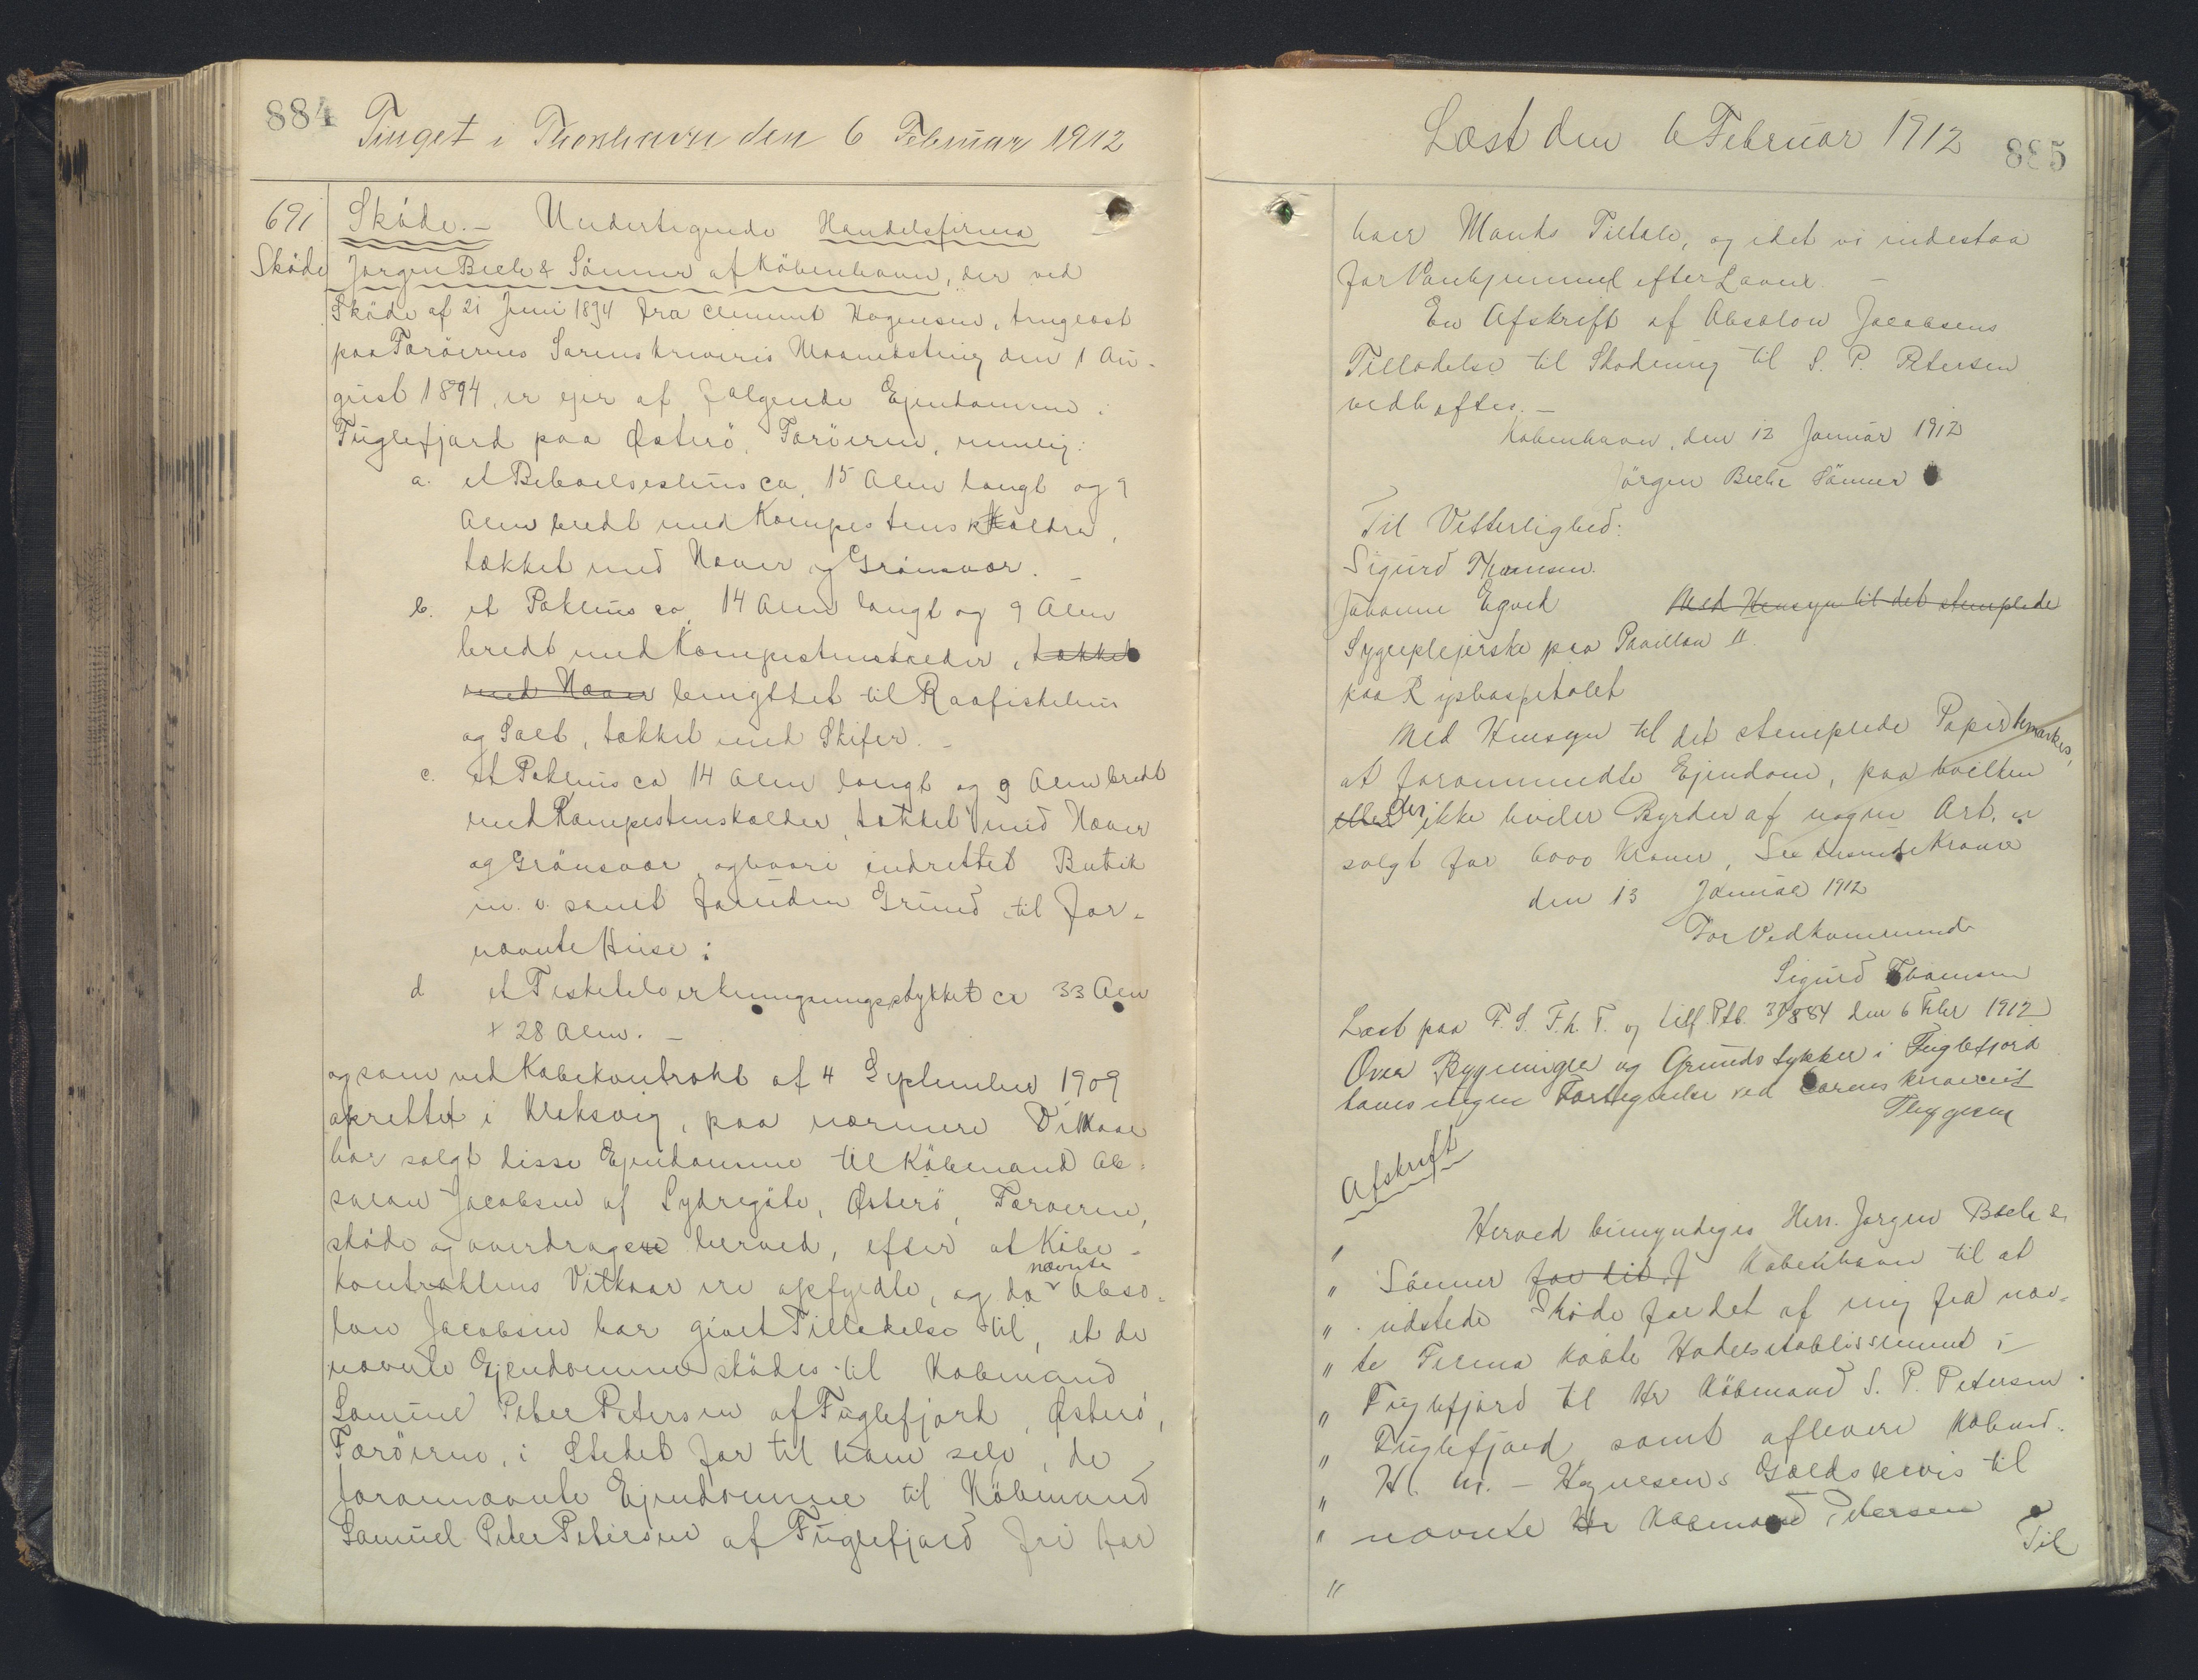 884
Tinget i Thorshavn den 6 Februar 1912
691
Skøde
Skøde.- Undertegnede Handelsfirma
Jørgen Bech & Sönner af Köbenhavn, der ved
Skøde af 21 Juni 1894 fra Clement Hognesen, tinglæst
paa Færöernes Sorenskriveris Maanedsting den 1 Au-
gust 1894, er ejer af følgende Ejendomme i
Fuglefjord paa Østerö, Færöerne, nemlig:
a. et Beboelseshus ca. 15 Alen langt og 9
Alen bredt med Kampestenskælder,
tækket med Næver og Grönsvær. -
b. et Pakhus ca. 14 Alen langt og 9 Alen
bredt med Kampestenskælder, tækket
med Næver benyttet til Raafiskehus
og Salt, tækket med Skifer. -
c. et Pakhus ca 14 Alen langt og 9 Alen bredt
med Kampestenskælder, tækket med Næver
og Grönsvær, og hvori indrettet Butik
m. v. samt foruden Grund til for-
nævnte Huse;
d et Fisketilvirkningsstykket ca 33 Alen
+ 28 Alen. -
og som ved Købekontrakt af 4 September 1909
oprettet i Kleksvig, paa nærmere Vilkaar
har solgt disse Ejendomme til Köbmand Ab-
salon Jacobsen af Sydregöte, Østerö, Færöerne,
skøde og overdragere herved, efter at Købe-
kontraktens Vilkaar ere opfyldte, og da nævnte Abso-
lon Jacobsen har givet Tilladelse til, at de
nævnte Ejendomme skødes til Købmand
Samuel Peter Petersen af Fuglefjord, Østerö,
Færöerne, i Stedet for til ham selv, de
forannævnte Ejendomme til Köbmand
Samuel Peter Petersen af Fuglefjord fri for
Læst den 6 Februar 1912
885
hver Mands Tiltale, og idet vi indestaa
for Vanhjemmel efter Loven. -
En Afskrift af Absalon Jacobsens
Tilladelse til Skødning til S. P. Petersen
vedhæftes. -
København, den 12 Januar 1912
Jörgen Bechs Sönner
Til Vitterlighed:
Sigurd Thomsen.
Johanne Egved
Med Hensyn til det stemplede
Sygeplejerske paa Pavillon II
paa Rigshospitalet
Med Hensyn til det stemplede Papir bemærkes,
at forommeldte Ejendom, paa hvilken
eller der ikke hviler Byrder af nogen Art, er
solgt for 6000 Kroner, Sex tusinde Kroner
den 13 Januar 1912
For Vedkommende
Sigurd Thomsen
Læst paa F. S. F. h. T. og tilf. Ptb. 884 den 6 Febr 1912
Over Bygninger og Grundstykker i Fuglefjord
haves ingen Fortegnelse ved Sorenskriveriet
Thygesen
Afskrift
" Herved bemyndiges Herr. Jørgen Bech &
" Sönner for det f København til at
" udstede Skøde for det af mig fra næv-
" te Firma købte Handelsetablissement i
" Fuglefjord til Hr Köbmand S. P. Petersen
" Fuglefjord samt aflevere Købmd.
" Kl. M. - Hognesens Gældsbevis til
" nævnte Hr Købmand Petersen
"
Til